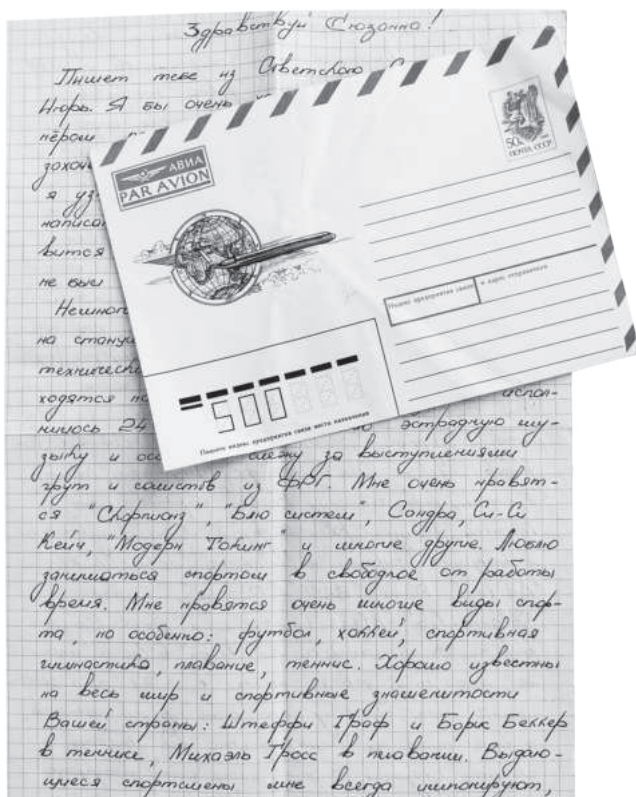 Здравствуй Сюзанна!
Пишет тебе из Советского
Игорь. Я бы очень
нёром
захоч
я уз
написа
вится
не был
Немного
на
техническ
ходятся на испол-
нилось 24 эстрадную му-
зыку и ос слежу за выступлениями
групп и солистов из ФРГ. Мне очень нравят-
ся "Скорпионз", "Блю систем", Сандра, Си-Си
Кейч, "Модерн Токинг" и многие другие. Люблю
заниматься спортом в свободное от работы
время. Мне нравятся очень многие виды спор-
та, но особенно: футбол, хоккей, спортивная
гимнастика, плавание, теннис. Хорошо известны
на весь мир и спортивные знаменитости
Вашей страны: Штеффи Граф и Борис Беккер
в теннисе, Михаэль Гросс в плавании. Выдаю-
щиеся спортсмены мне всегда импонируют,
АВИА
PAR AVION
50к
ПОЧТА СССР
Индекс предприятия связи и адрес отправителя
500
Пишите индекс предприятия связи места назначения